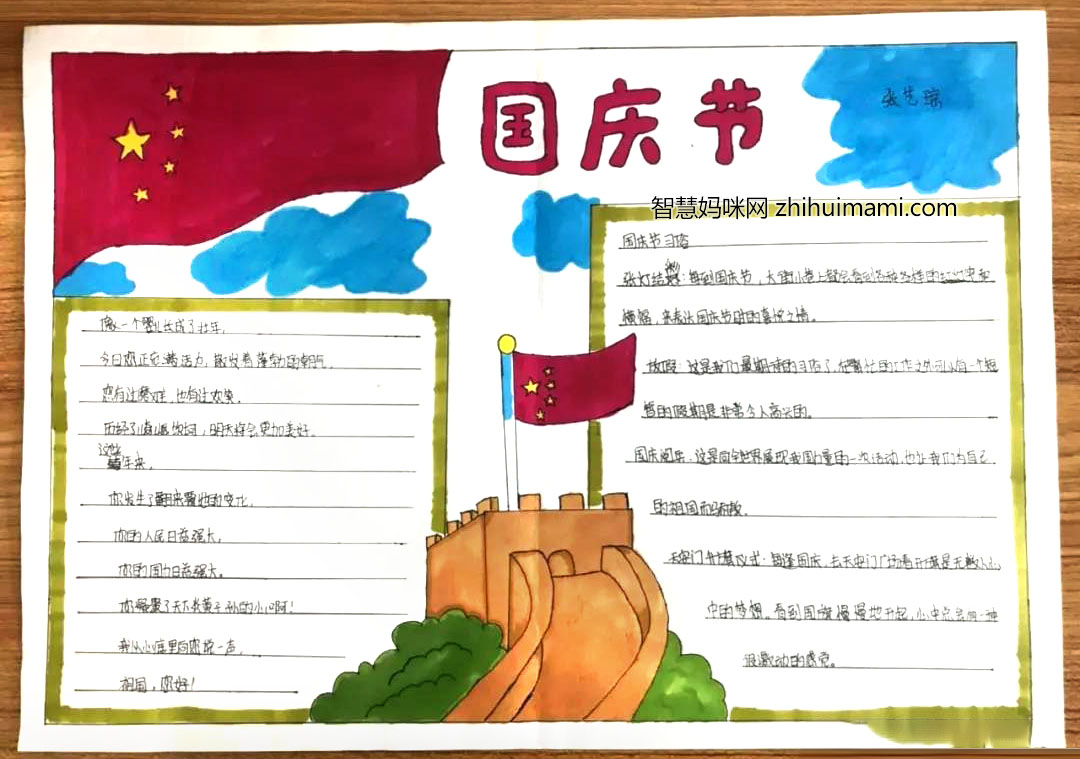 国庆节
张艺琼
智慧妈咪网 zhihuimami.com
像一个婴儿长成了壮年,
今日您正充满活力,散发着蓬勃的朝气。
您有过磨难,也有过欢笑。
历经了
,明天将会更加美好。
这些
年来,
你发生了翻天覆地的变化,
你的人民日益强大,
你的国力日益强大。
你凝聚了天下炎黄子孙的心啊!
我从心底里向您说一声,
祖国,您好!
国庆节习俗
张灯结彩:每到国庆节,大街小巷上都会看到各种各样的红灯笼和
横幅,来表达国庆节时的喜悦之情。
放假:这是我们最期待的习俗了,在繁忙的工作之外可以有一个短
暂的假期是非常令人高兴的。
国庆阅兵:这是向全世界展现我国力量的一次活动,也让我们为自己
的祖国而骄傲。
天安门升旗仪式:每逢国庆,去天安门广场看升旗是无数人心
中的梦想。看到国旗慢慢地升起,心中总会有一种
很激动的感觉。